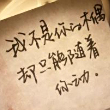 我不是你的木偶
却只能随着
你而动.